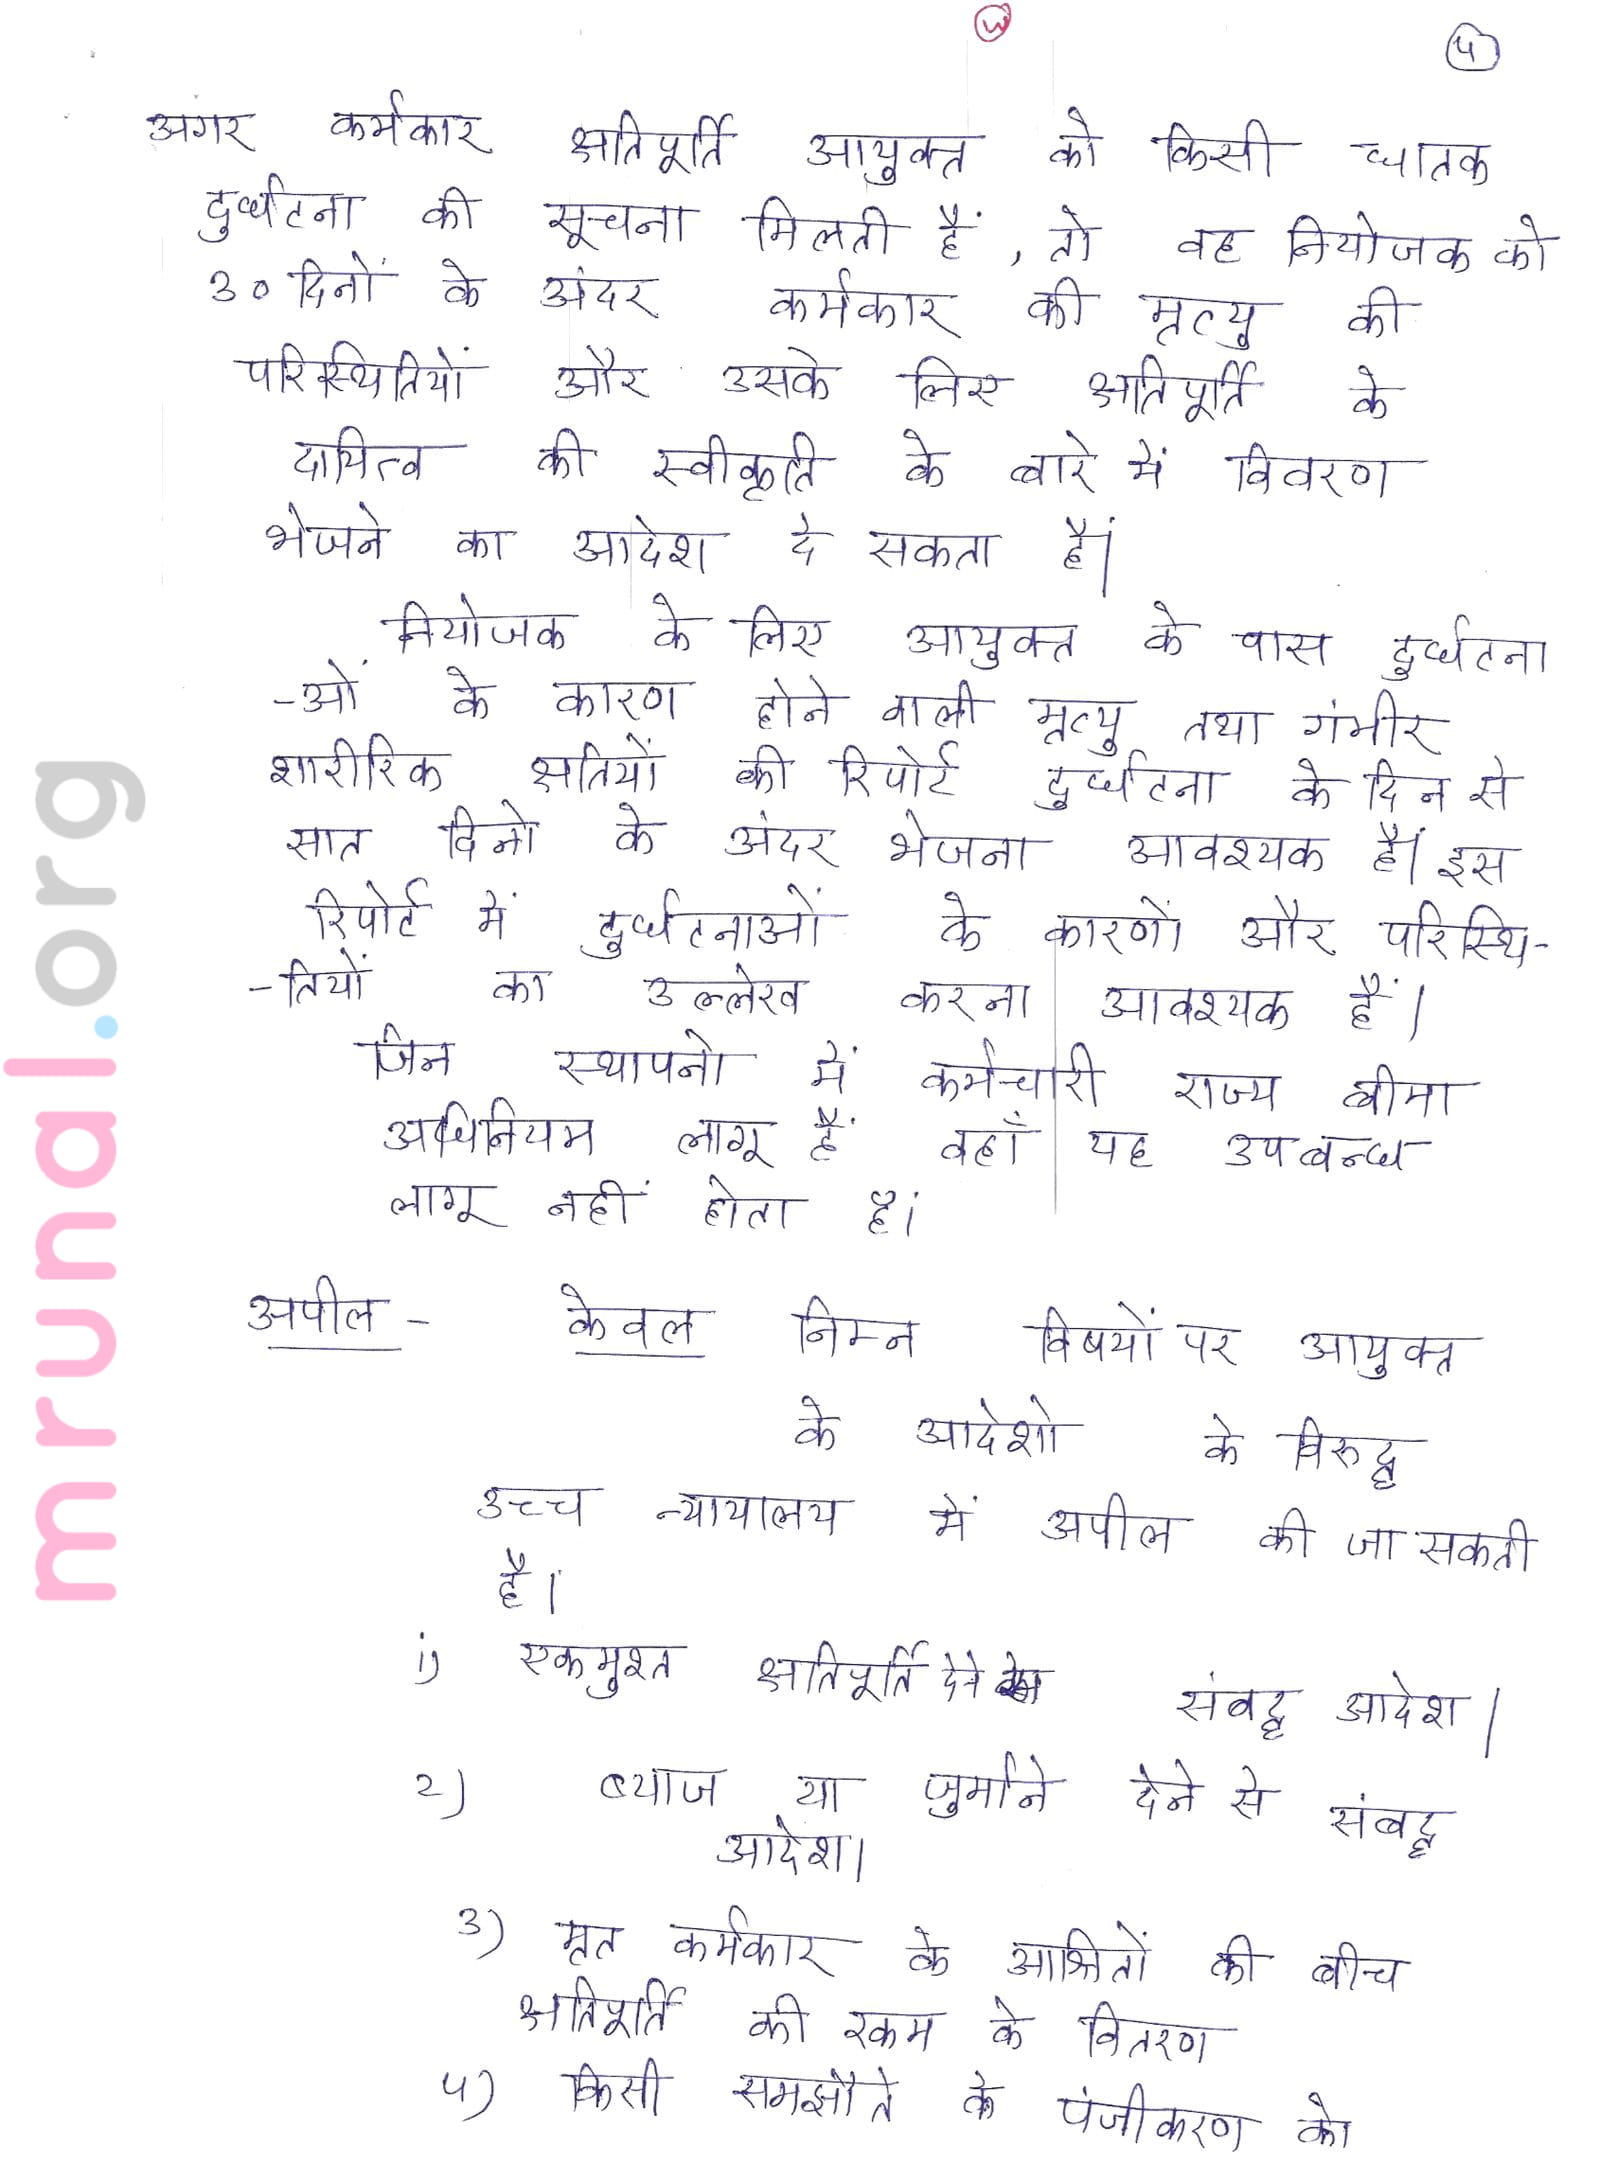 W
५
अगर कर्मकार क्षतिपूर्ति आयुक्त को किसी घातक
दुर्घटना की सूचना मिलती हैं, तो वह नियोजक को
30 दिनों के अंदर कर्मकार की मृत्यु की
परिस्थितियों और उसके लिए क्षतिपूर्ति के
दायित्व की स्वीकृति के बारे में विवरण
भेजने का आदेश दे सकता हैं।
नियोजक के लिए आयुक्त के पास दुर्घटना
-ओं के कारण होने वाली मृत्यु तथा गंभीर
शारीरिक क्षतियों की रिपोर्ट दुर्घटना के दिन से
सात दिनो के अंदर भेजना आवश्यक हैं। इस
रिपोर्ट में दुर्घटनाओं के कारणों और परिस्थि-
-तियों का उल्लेख करना आवश्यक हैं।
जिन स्थापनो में कर्मचारी राज्य बीमा
अधिनियम लागू हैं वहाँ यह उपबन्ध
लागू नहीं होता है।
अपील - केवल निम्न विषयों पर आयुक्त
के आदेशो के विरुद्ध
उच्च न्यायालय में अपील की जा सकती
है।
i) एकमुश्त क्षतिपूर्ति देने संबद्ध आदेश।
2) ब्याज या जुर्माने देने से संबद्ध
आदेश।
3) मृत कर्मकार के आश्रितों की बीच
क्षतिपूर्ति की रकम के वितरण
५) किसी समझौते के पंजीकरण को
mrunal.org